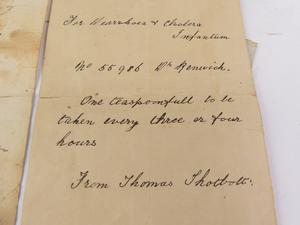 For Diarrhoea & Cholera
Infantum
No 55986 Dr Renwick.
One teaspoonfull to be
taken every three or four
hours
From Thomas Shotbolt